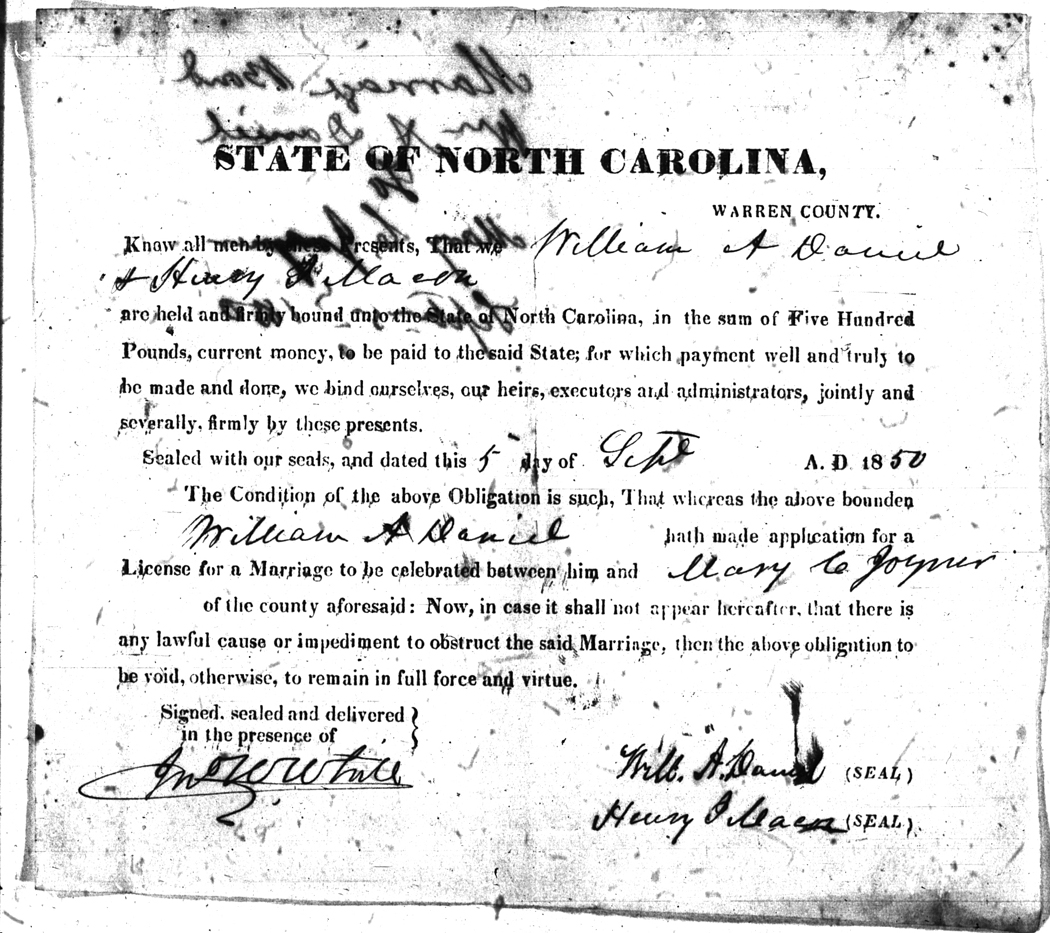 Marriage Bond
Wm A Daniel
to
STATE OF NORTH CAROLINA,
WARREN COUNTY.
Know all men by these Presents, That we William A Daniel
& Henry Macon
are held and firmly bound unto the State of North Carolina, in the sum of Five Hundred
Pounds, current money, to be paid to the said State; for which payment well and truly to
be made and done, we bind ourselves, our heirs, executors and administrators, jointly and
severally, firmly by these presents.
Sealed with our seals, and dated this 5 day of Sept A. D 1850
The Condition of the above Obligation is such, That whereas the above bounden
William A Daniel hath made application for a
License for a Marriage to be celebrated between him and Mary C Joyner
of the county aforesaid: Now, in case it shall not appear hereafter, that there is
any lawful cause or impediment to obstruct the said Marriage, then the above obligation to
be void, otherwise, to remain in full force and virtue.
Signed, sealed and delivered
in the presence of
Jno W White
Will. A. Daniel (SEAL)
Henry Macon (SEAL)